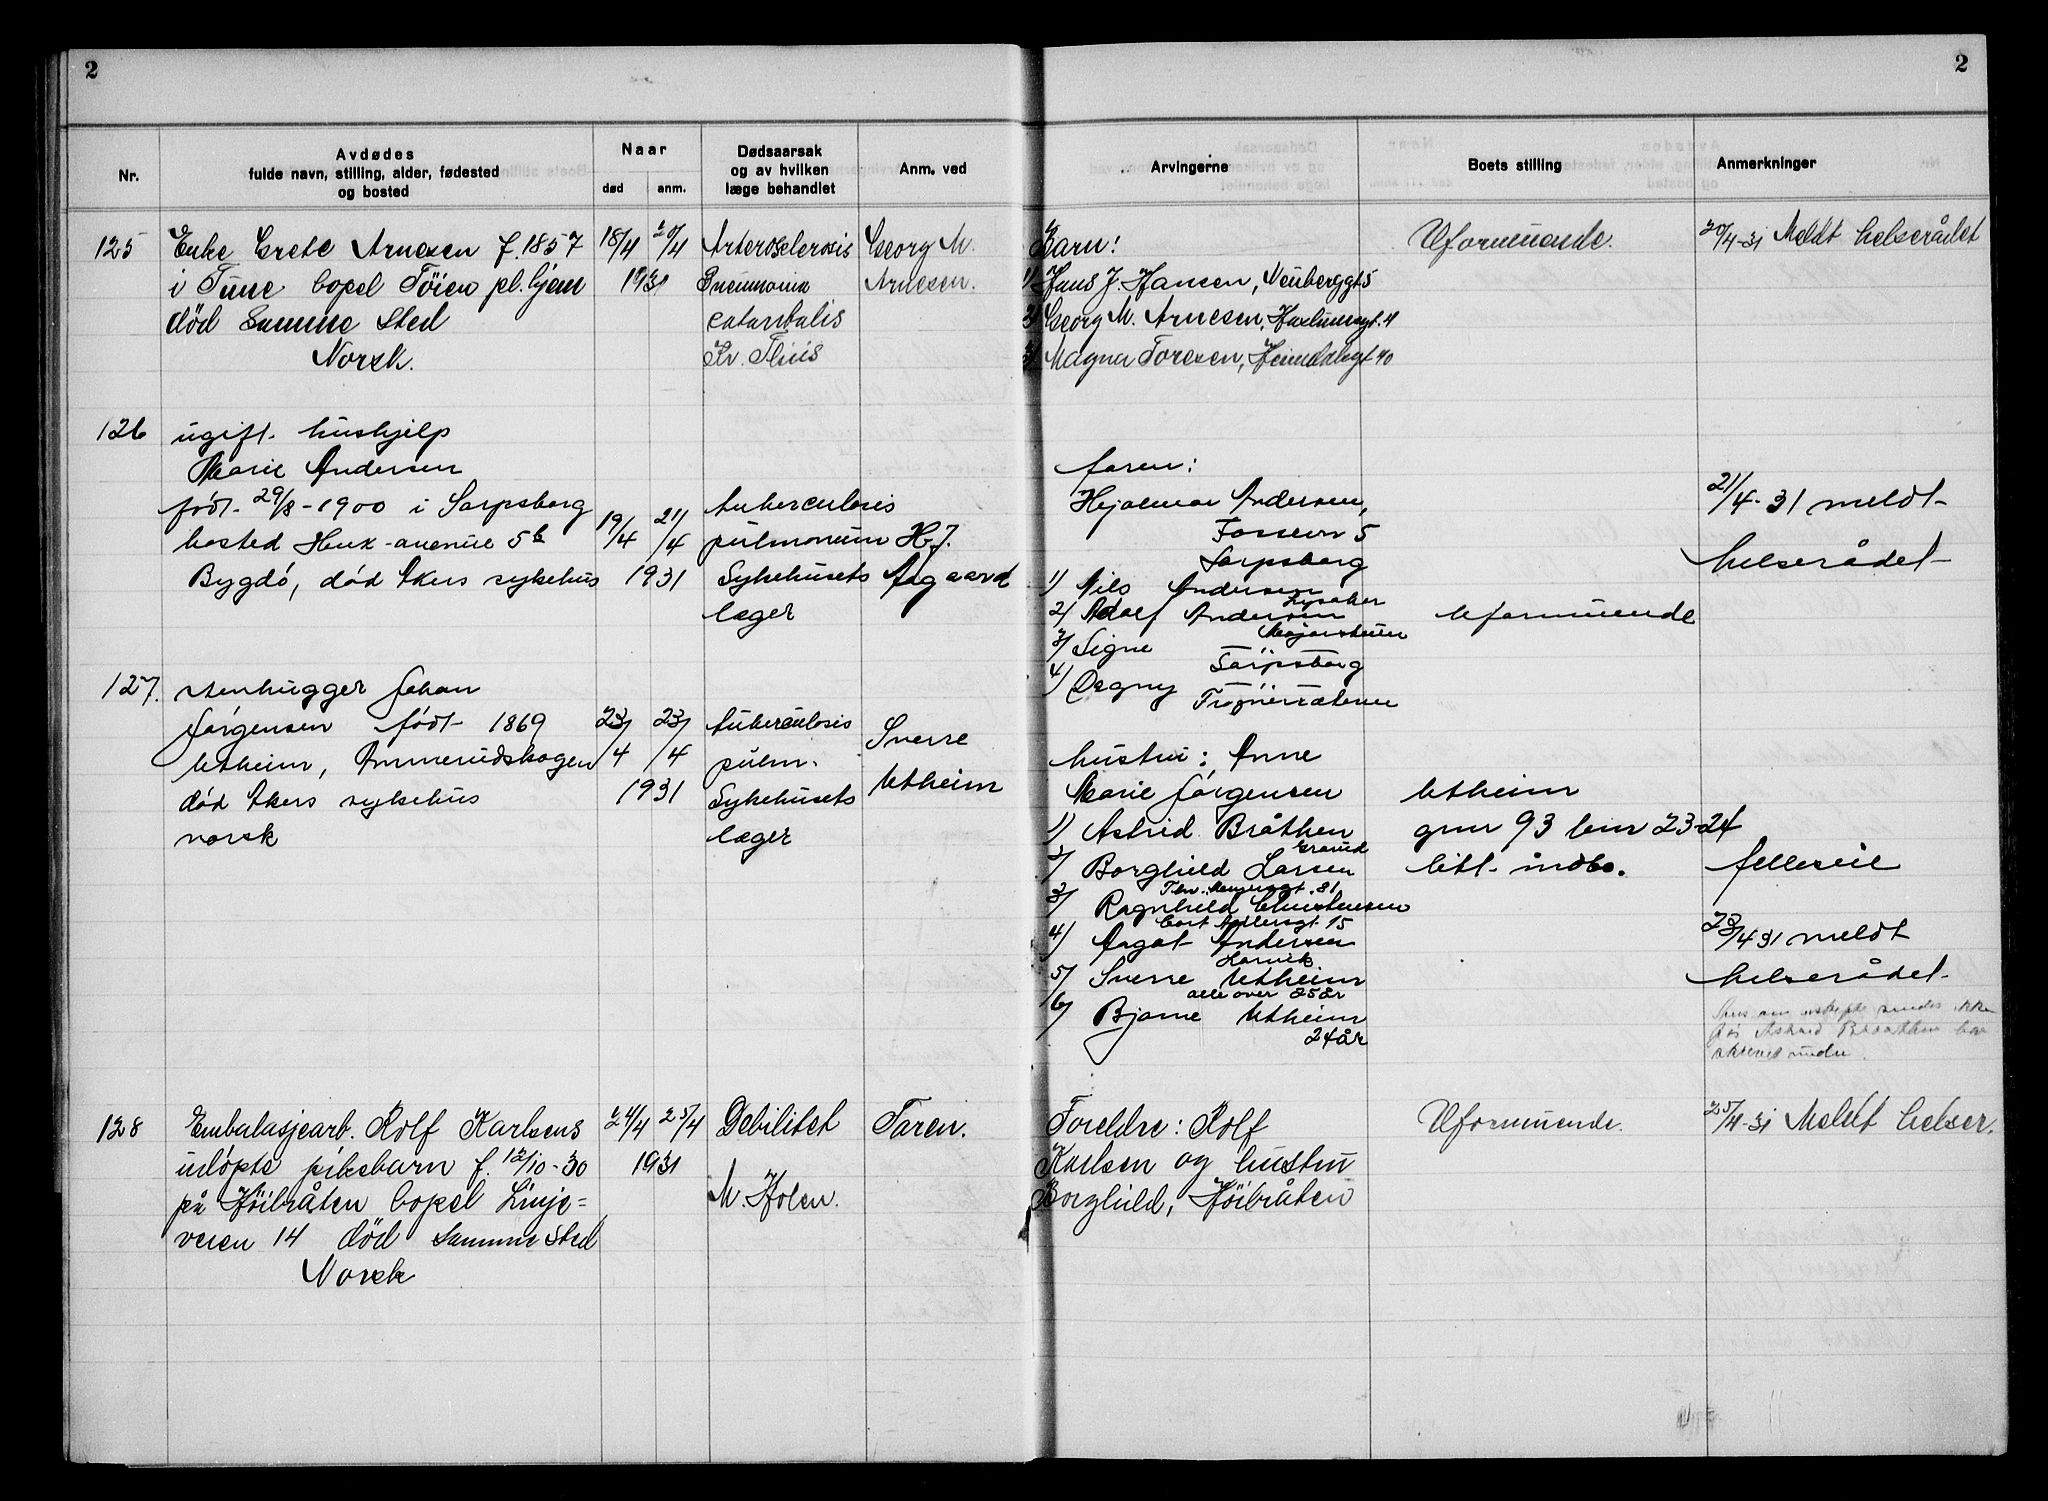 2
2
Nr.
Avdødes
fulde navn, stilling, alder, fødested
og bosted
Naar
død
anm.
Dødsaarsak
og av hvilken
læge behandlet
Anm. ved
Arvingerne
Boets stilling
Anmerkninger
125
Enke Grete Arnesen f. 1857
i Tune bopel Töien pl.hjem
död Samme Sted
Norsk.
18/4 20/4
1931
Arterosclerosis
Pneumonia
catarrhalis
Georg M.
Arnesen.
Barn:
1) Hans J. Hansen, Neuberggt 5
2) Georg M. Arnesen,
3) Magna Toresen, Heimdalsgt 40
Uformuende.
20/4-31 Meldt helserådet
126
ugift hushjelp
Marie Andersen
født 29/8-1900 i Sarpsborg
bosted Huk avenue 5b
Bygdö, död Akers sykehus
19/4 21/4
1931
Tuberculosis
pulmonum
Sykehusets
læger
H.J.
Aagaard
faren:
Hjalmar Andersen,
Fossevn 5
Sarpsborg
1) Nils Andersen
Lysaker
2) Adolf Andersen
Majorstuen
3) Signe
Sarpsborg
4) Dagny
Frognersæteren
Uformuende
21/4-31 meldt
helserådet
127.
stenhugger Johan
Jørgensen født 1869
Utheim, Ammerudskogen
död Akers sykehus
norsk
23/4 23/4
1931
Tuberculosis
pulm.
Sykehusets
læger
Sverre
Utheim
hustru: Anne
Marie Jørgensen
1) Astrid Bråthen
Grorud
2) Borghild Larsen
3) Ragnhild Christensen
Cort Adlersgt 15
4) Aagot Andersen
Larvik
5) Sverre Utheim
alle over 25 år
6) Bjarne Utheim
24 år
Utheim
gnr 93 bnr 23-24
litt indbo.
felleseie
23/4 31 meldt
helserådet
128
Embalasjearb. Rolf Karlsens
udöpte pikebarn f. 12/10-30
på Höibråten bopel Linje-
veien 14 död samme Sted
Norsk
24/4 25/4
1931
Debilitet
M. Holen.
Faren.
Foreldre: Rolf
Karlsen og hustru
Borghild, Höibråten
Uformuende.
25/4-31 Meldt helser.